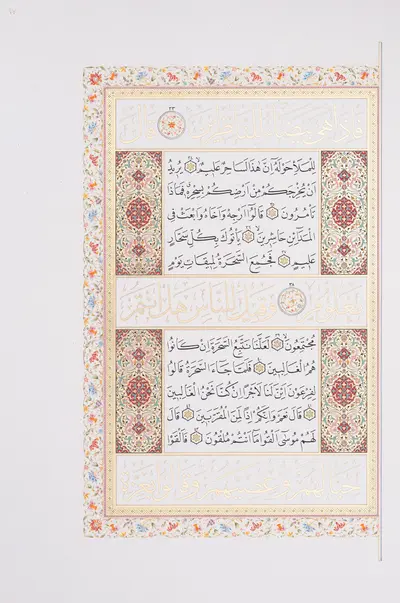 فَاِذَا هِيَ بَيْضَاءُ لِلنَّاظِرِينَ قَالَ
لِلْمَلَاِ حَوْلَهُ اِنَّ هٰذَا لَسَاحِرٌ عَلِيمٌ يُرِيدُ
اَنْ يُخْرِجَكُمْ مِنْ اَرْضِكُمْ بِسِحْرِهِ فَمَاذَا
تَأْمُرُونَ قَالُوا اَرْجِهْ وَاَخَاهُ وَابْعَثْ فِي
الْمَدَائِنِ حَاشِرِينَ يَأْتُوكَ بِكُلِّ سَحَّارٍ
عَلِيمٍ فَجُمِعَ السَّحَرَةُ لِمِيقَاتِ يَوْمٍ
مَعْلُومٍ وَقِيلَ لِلنَّاسِ هَلْ اَنْتُمْ
مُجْتَمِعُونَ لَعَلَّنَا نَتَّبِعُ السَّحَرَةَ اِنْ كَانُوا
هُمُ الْغَالِبِينَ فَلَمَّا جَاءَ السَّحَرَةُ قَالُوا
لِفِرْعَوْنَ اَئِنَّ لَنَا لَاَجْرًا اِنْ كُنَّا نَحْنُ الْغَالِبِينَ
قَالَ نَعَمْ وَاِنَّكُمْ اِذًا لَمِنَ الْمُقَرَّبِينَ قَالَ
لَهُمْ مُوسٰى اَلْقُوا مَا اَنْتُمْ مُلْقُونَ فَاَلْقَوْا
حِبَالَهُمْ وَعِصِيَّهُمْ وَقَالُوا